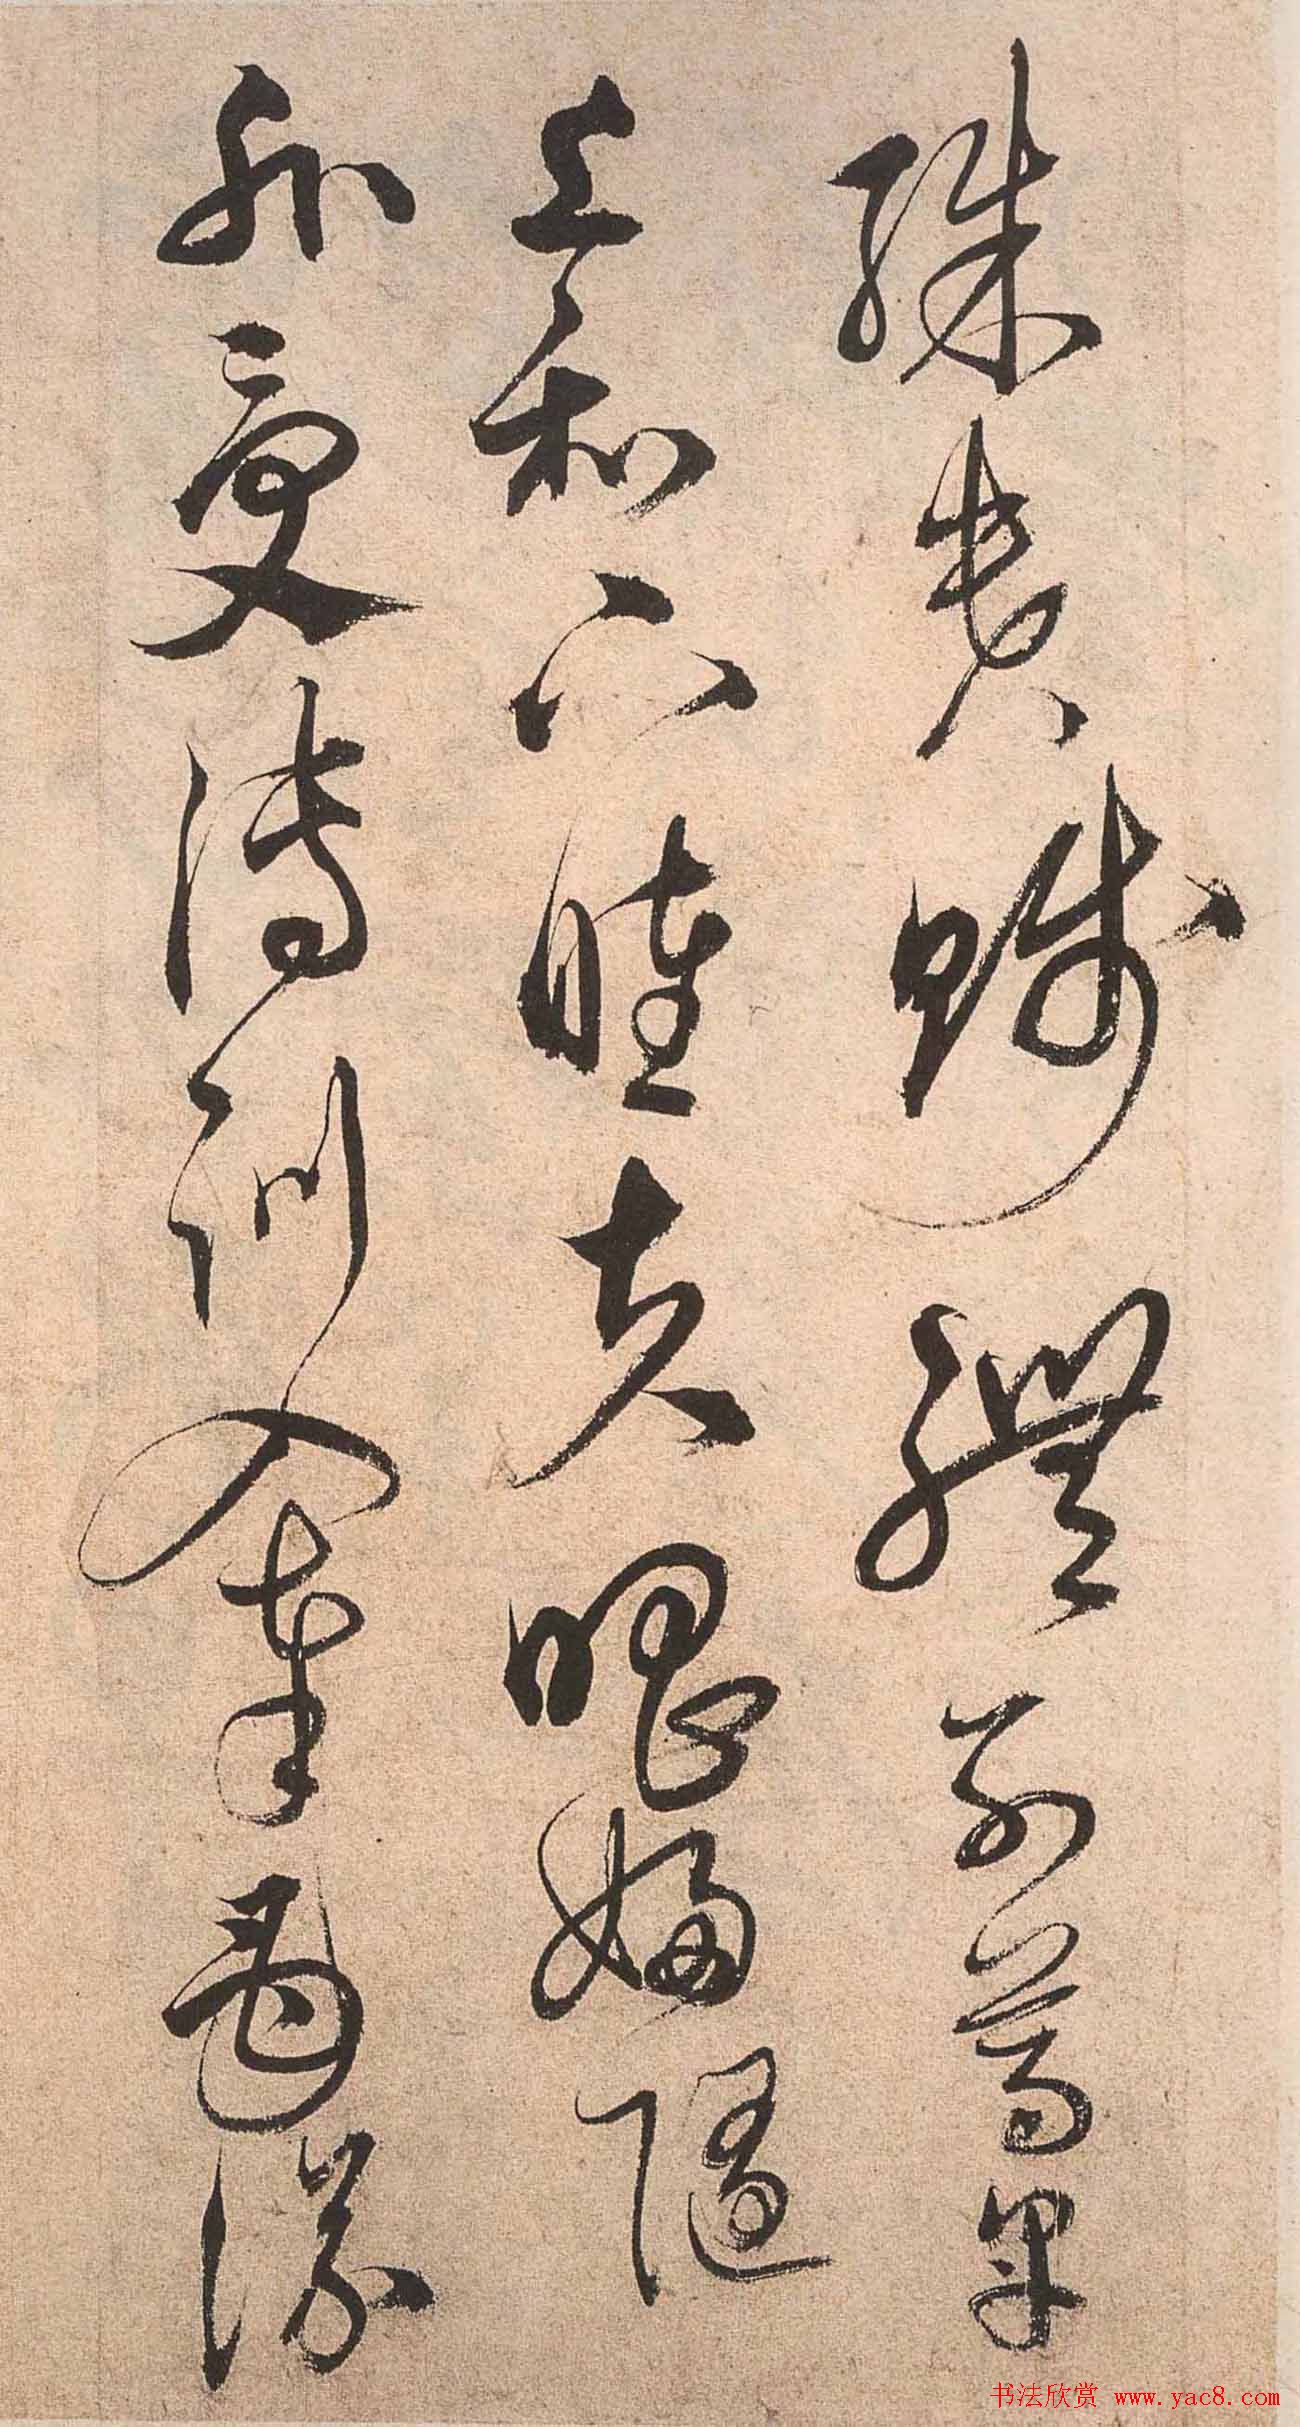 殊貴賤禮别尊卑
上和下睦夫唱婦隨
外受傅訓入奉母儀
书法欣赏 www.yac8.com